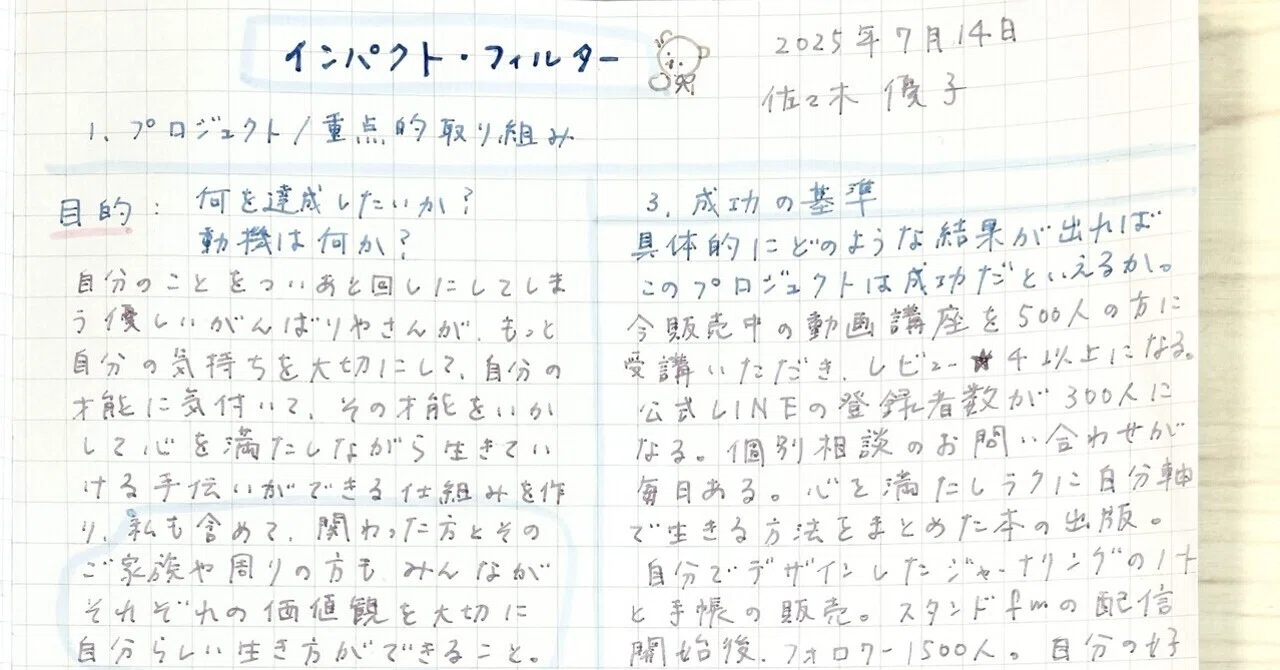 インパクト・フィルター
2025年7月14日
佐々木 優子
1. プロジェクト/重点的取り組み
目的: 何を達成したいか?
動機は何か?
自分のことをついあと回しにしてしま
う優しいがんばりやさんが、もっと
自分の気持ちを大切にして、自分の
才能に気付いて、その才能をいか
して心を満たしながら生きてい
ける手伝いができる仕組みを作
り、私も含めて、関わった方とその
ご家族や周りの方も みんなが
それぞれの価値観を大切に
自分らしい生き方ができること。
3. 成功の基準
具体的にどのような結果が出れば
このプロジェクトは成功だといえるか。
今販売中の動画講座を500人の方に
受講いただき、レビュー★4以上になる。
公式LINEの登録者数が300人に
なる。個別相談のお問い合わせが
毎日ある。心を満たしラクに自分軸
で生きる方法をまとめた本の出版。
自分でデザインしたジャーナリングのノート
と手帳の販売。スタンドfmの配信
開始後、フォロワー1500人。自分の好